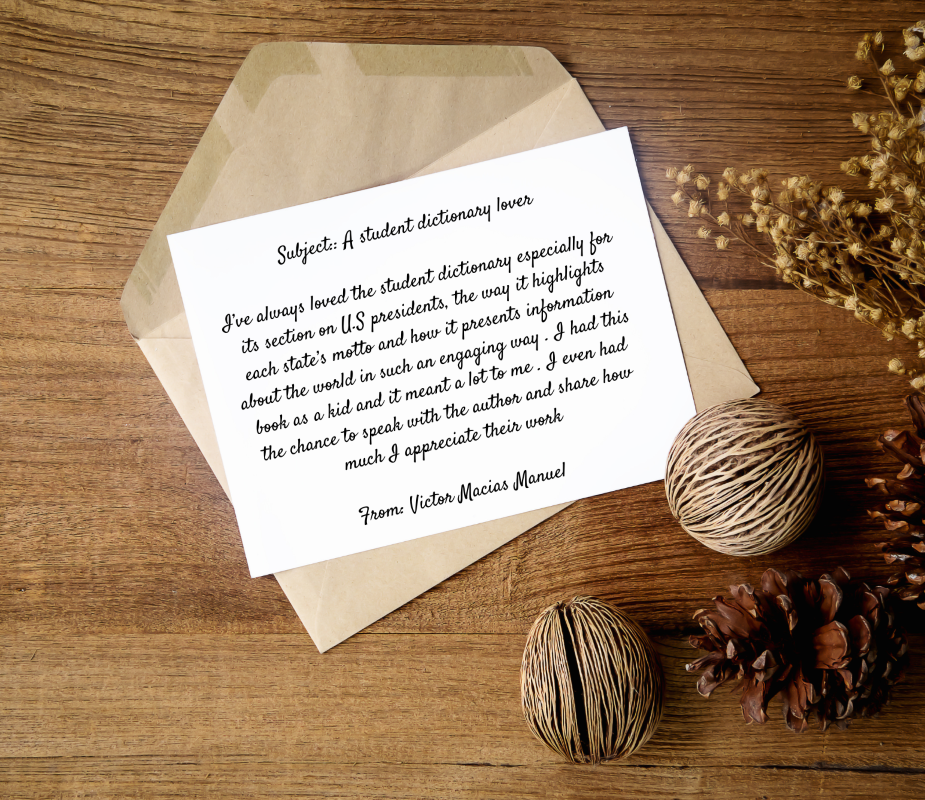 Subject:: A student dictionary lover
I've always loved the student dictionary especially for
its section on U.S presidents, the way it highlights
each state's motto and how it presents information
about the world in such an engaging way . I had this
book as a kid and it meant a lot to me . I even had
the chance to speak with the author and share how
much I appreciate their work
From: Victor Macias Manuel